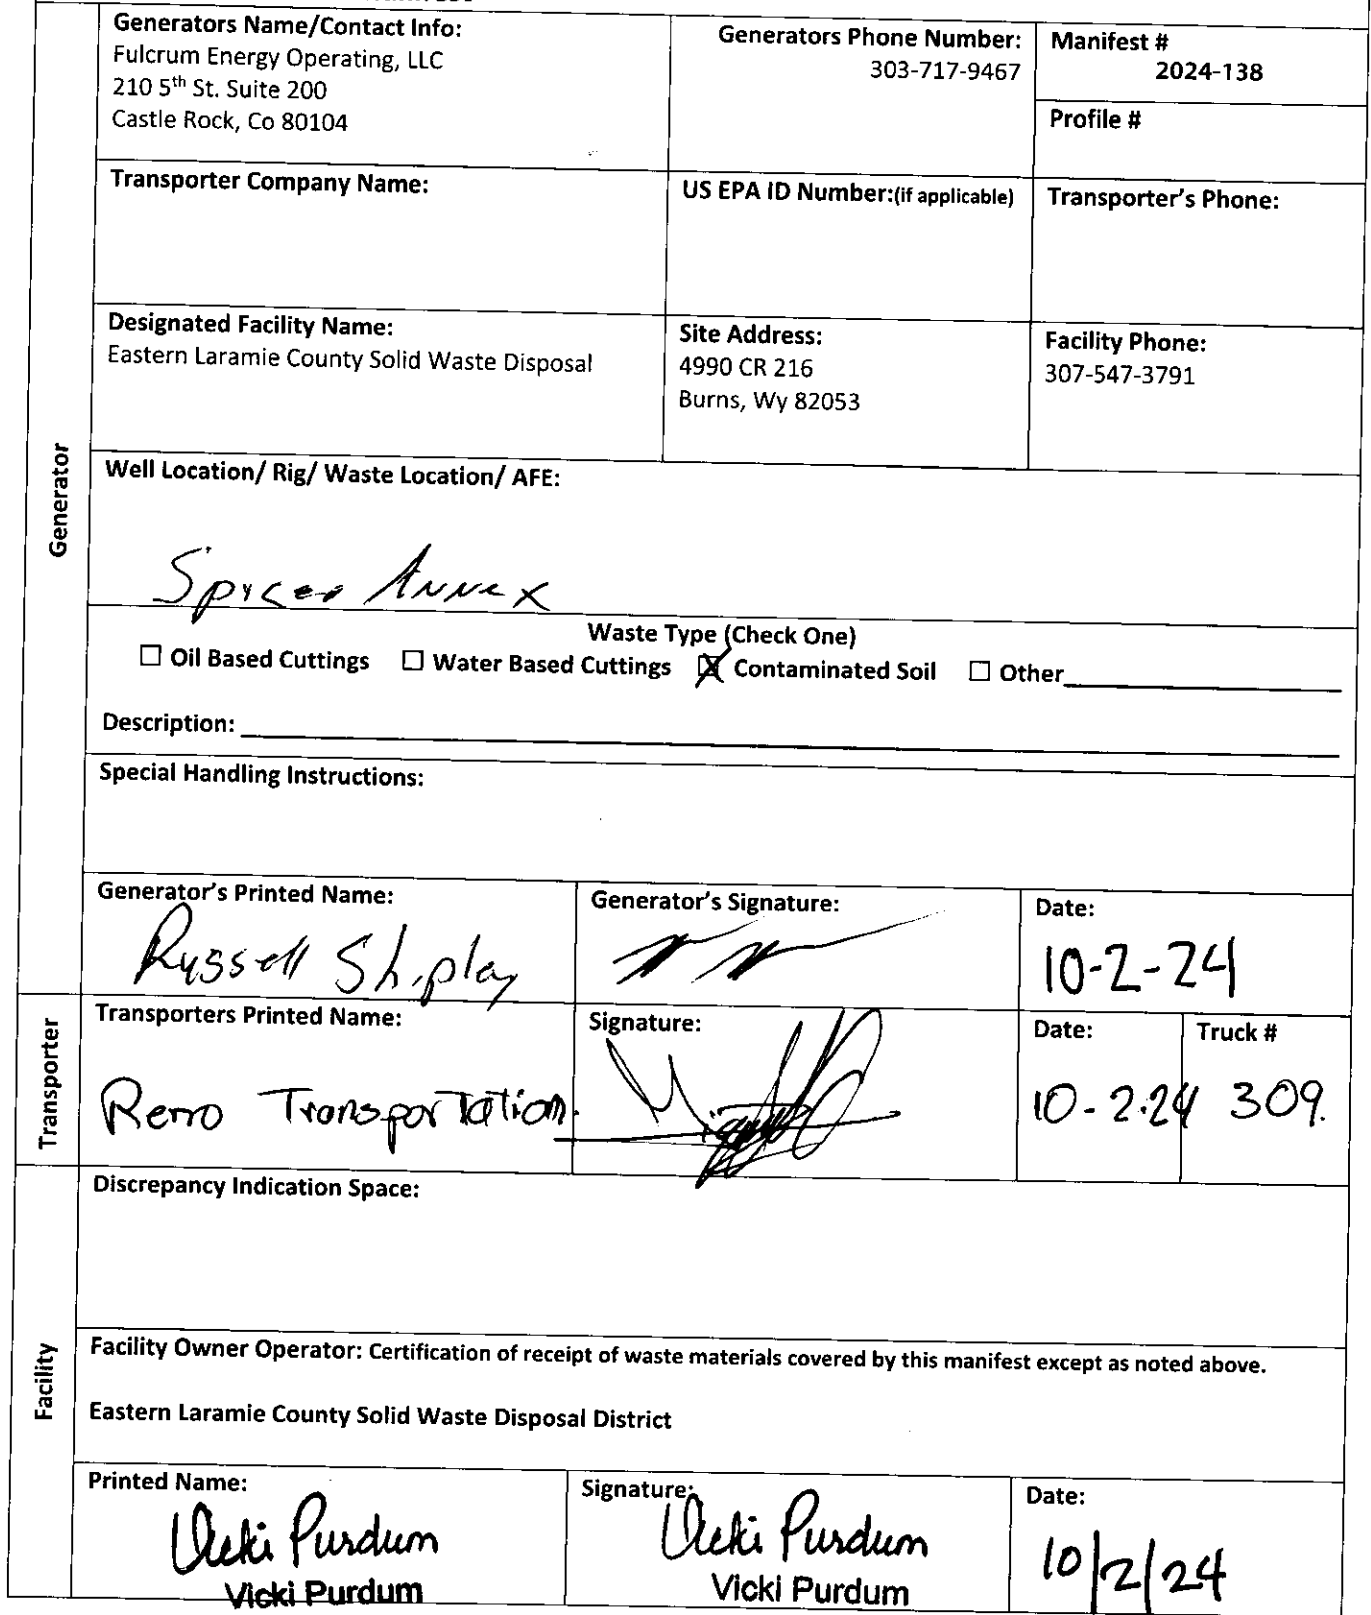 Generators Name/Contact Info:
Fulcrum Energy Operating, LLC
210 5th St. Suite 200
Castle Rock, Co 80104
Generators Phone Number:
303-717-9467
Manifest #
2024-138
Profile #
Transporter Company Name:
US EPA ID Number:(if applicable)
Transporter's Phone:
Designated Facility Name:
Eastern Laramie County Solid Waste Disposal
Site Address:
4990 CR 216
Burns, Wy 82053
Facility Phone:
307-547-3791
Generator
Well Location/ Rig/ Waste Location/ AFE:
Spicer Annex
Waste Type (Check One)
☐ Oil Based Cuttings ☐ Water Based Cuttings ☒ Contaminated Soil ☐ Other
Description:
Special Handling Instructions:
Generator's Printed Name:
Russell Shipley
Generator's Signature:
Date:
10-2-24
Transporter
Transporters Printed Name:
Transportation.
Signature:
Date:
10-2-24
Truck #
309.
Facility
Discrepancy Indication Space:
Facility Owner Operator: Certification of receipt of waste materials covered by this manifest except as noted above.
Eastern Laramie County Solid Waste Disposal District
Printed Name:
Vicki Purdum
Vicki Purdum
Signature:
Vicki Purdum
Vicki Purdum
Date:
10/2/24